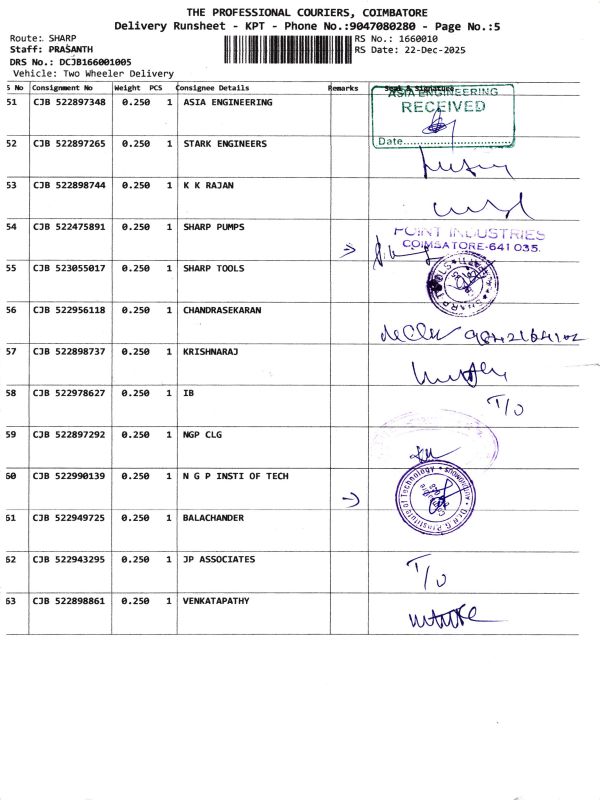 THE PROFESSIONAL COURIERS, COIMBATORE
Delivery Runsheet - KPT - Phone No.:9047080280 - Page No.:5
Route: SHARP
RS No.: 1660010
Staff: PRASANTH
RS Date: 22-Dec-2025
DRS No.: DCJB166001005
Vehicle: Two Wheeler Delivery
S No Consignment No Weight PCS Consignee Details Remarks Seal & Signature
51 CJB 522897348 0.250 1 ASIA ENGINEERING
ASIA ENGINEERING
RECEIVED
Date
52 CJB 522897265 0.250 1 STARK ENGINEERS
53 CJB 522898744 0.250 1 K K RAJAN
54 CJB 522475891 0.250 1 SHARP PUMPS
POINT INDUSTRIES
COIMBATORE-641 035.
55 CJB 523055017 0.250 1 SHARP TOOLS
SHARP TOOLS
56 CJB 522956118 0.250 1 CHANDRASEKARAN
57 CJB 522898737 0.250 1 KRISHNARAJ
58 CJB 522978627 0.250 1 IB
T/O
59 CJB 522897292 0.250 1 NGP CLG
60 CJB 522990139 0.250 1 N G P INSTI OF TECH
Dr.N.G.P.Institute of Technology
61 CJB 522949725 0.250 1 BALACHANDER
62 CJB 522943295 0.250 1 JP ASSOCIATES
T/O
63 CJB 522898861 0.250 1 VENKATAPATHY